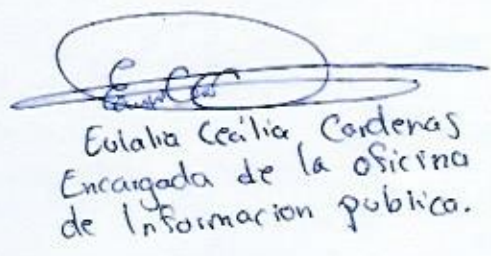 Eulalia Cecilia Cardenas
Encargada de la oficina
de Informacion publica.